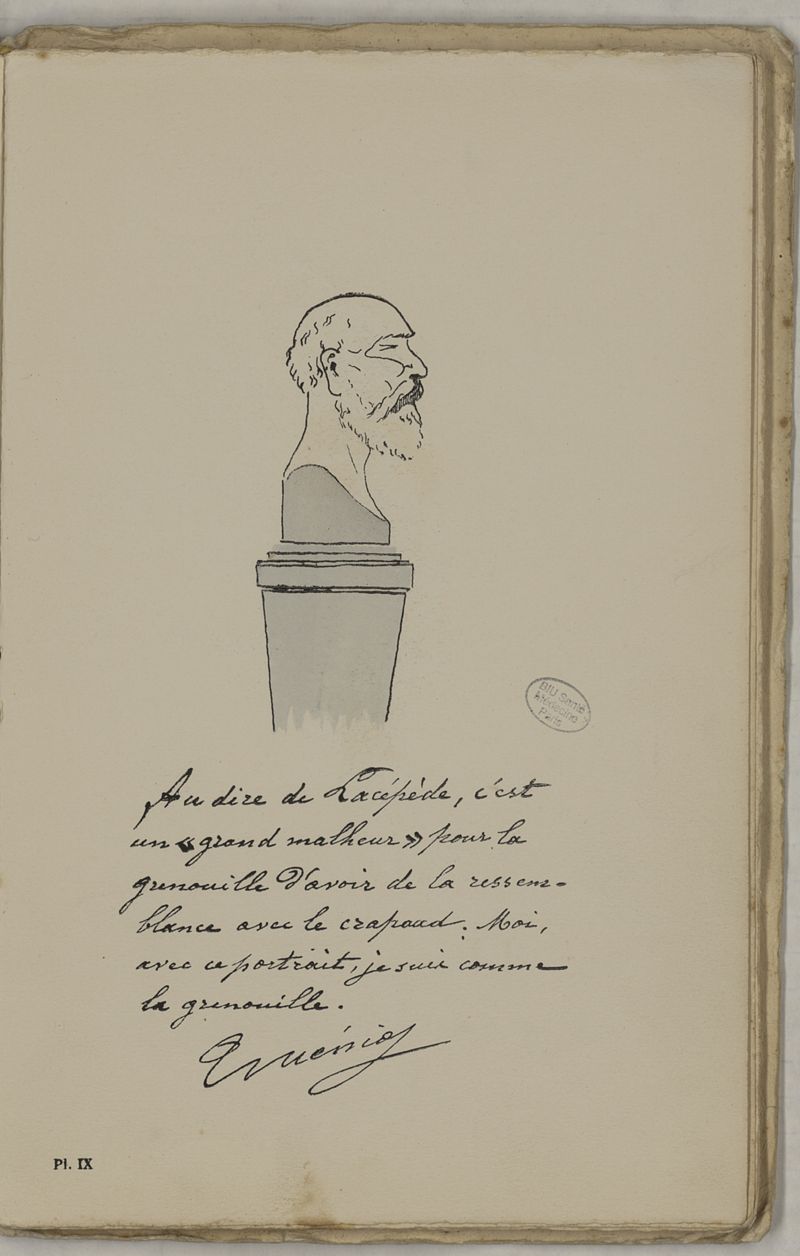 BIU Santé
Médecine
Paris
Au dire de Lacépède, c'est
un «grand malheur» pour la
grenouille d'avoir de la ressem-
blance avec le crapaud. Moi,
avec ce portrait, je suis comme
la grenouille.
Guéniot
Pl. IX